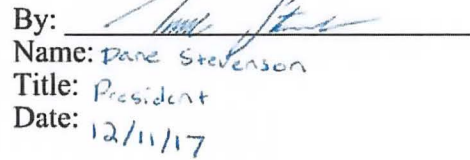 By:
Name: Dane Stevenson
Title: President
Date: 12/11/17